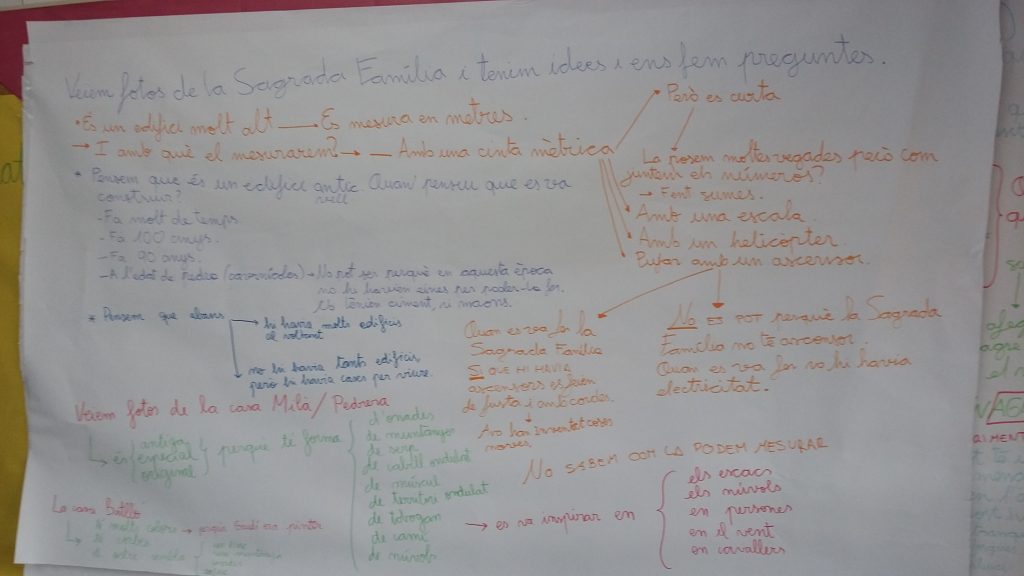 Veiem fotos de la Sagrada Família i tenim idees i ens fem preguntes.
• És un edifici molt alt → Es mesura en metres.
→ I amb què el mesurarem? → Amb una cinta mètrica
Però es curta
La posem moltes vegades però com
juntem els números?
→ Fent sumes.
Amb una escala
Amb un helicòpter.
Pujar amb un ascensor.
* Pensem que és un edifici antic. Quan penseu que es va
vell
construir?
- Fa molt de temps.
- Fa 100 anys.
- Fa 90 anys.
- A l'edat de pedra (cavernícoles) → No pot ser perquè en aquesta època
no hi havien eines per poder-la fer.
No tenien ciment, ni maons.
* Pensem que abans
hi havia molts edificis
al voltant
no hi havia tants edificis
però hi havia cases per viure.
Quan es va fer la
Sagrada Família
SI QUE HI HAVIA
ascensors es feien
de fusta i amb cordes.
Ara han inventat coses
noves
No ES POT perquè la Sagrada
Família no té ascensor.
Quan es va fer no hi havia
electricitat.
NO SABEM COM LA PODEM MESURAR
Veiem fotos de la casa Milà/Pedrera
és
antiga
especial
original
perquè té forma
d'onades
de muntanyes
de serp
de cabell ondulat
de múscul
de territori ondulat
de tobogan
de camí
de núvols
→ es va inspirar en
els escacs
els núvols
en persones
en el vent
en cavallers
La casa Batlló
té molts colors → perquè Gaudí era pintor